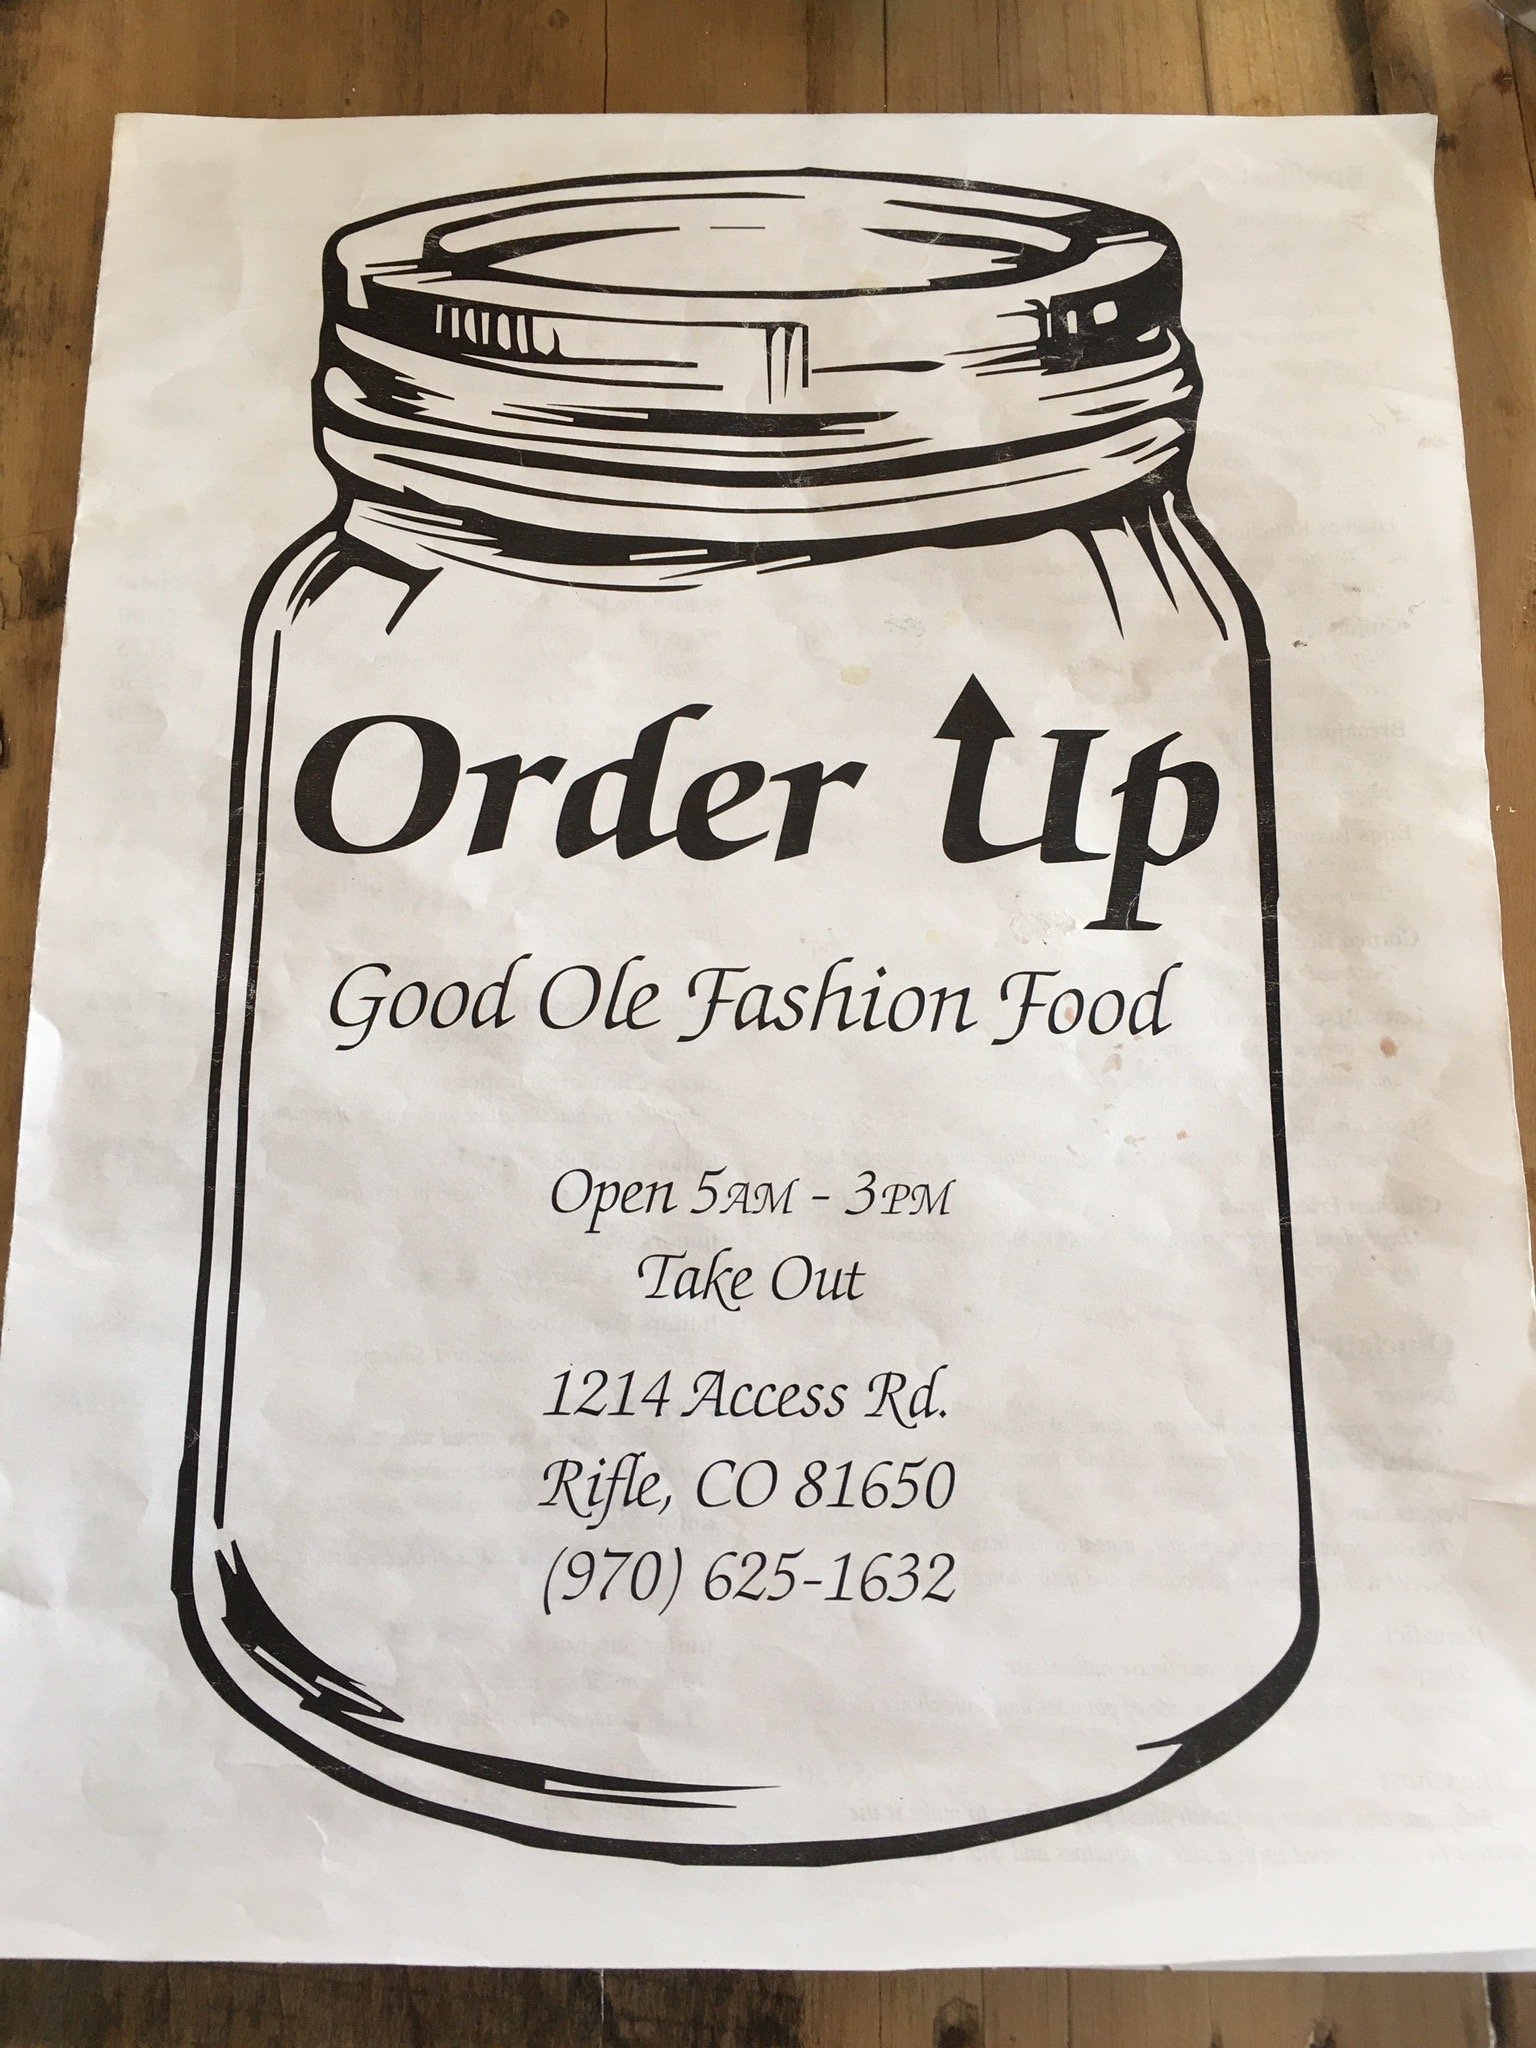 Order Up
Good Ole Fashion Food
Open 5AM - 3PM
Take Out
1214 Access Rd.
Rifle, CO 81650
(970) 625-1632